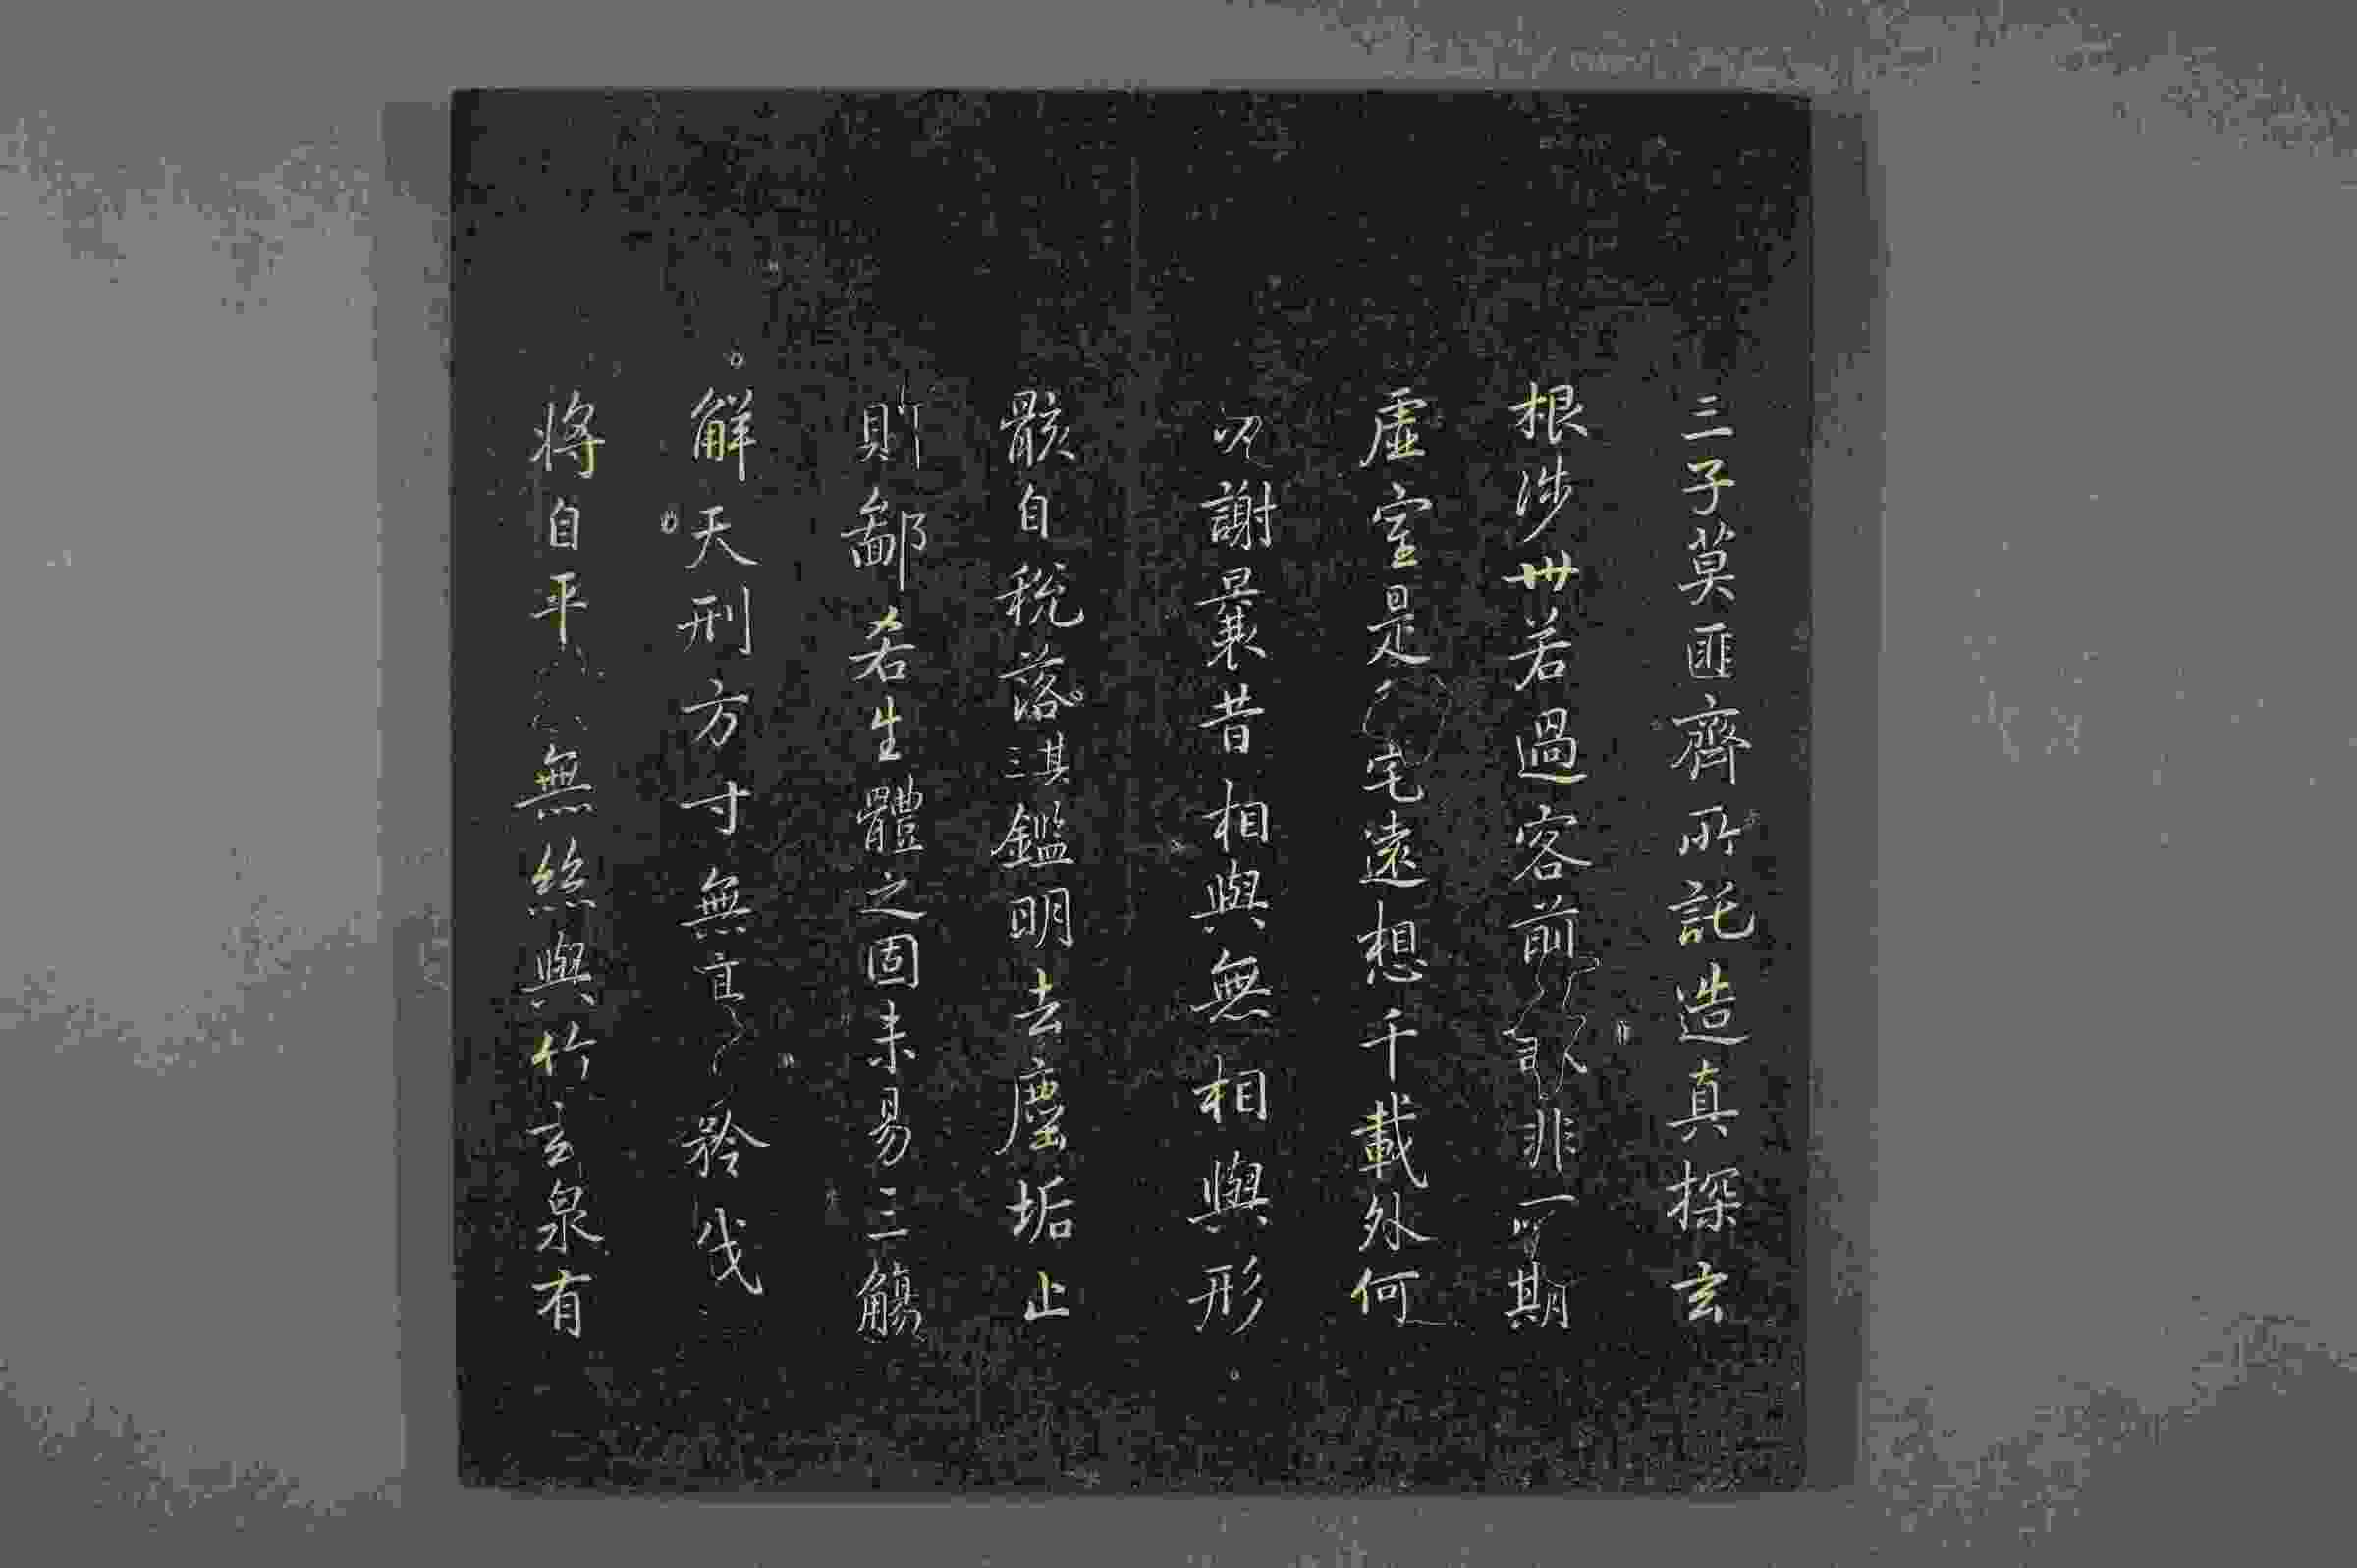 三子莫匪齊所託造真探玄
根涉世若過客前非一期
虛室是宅遠想千載外何
謝曩昔相與無相與形
骸自稅落其三鑑明去塵垢止
則鄙吝生體之固未易三觴
解天刑方寸無矜伐
將自平無絲與竹玄泉有